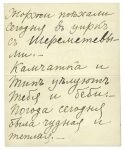 Жоржи поѣхали
сегодня въ циркъ
съ Шереметевы
ми.
Камчатка и
Тип цѣлуютъ
Тебя и беби.
Погода сегодня
была чудная и
теплая.